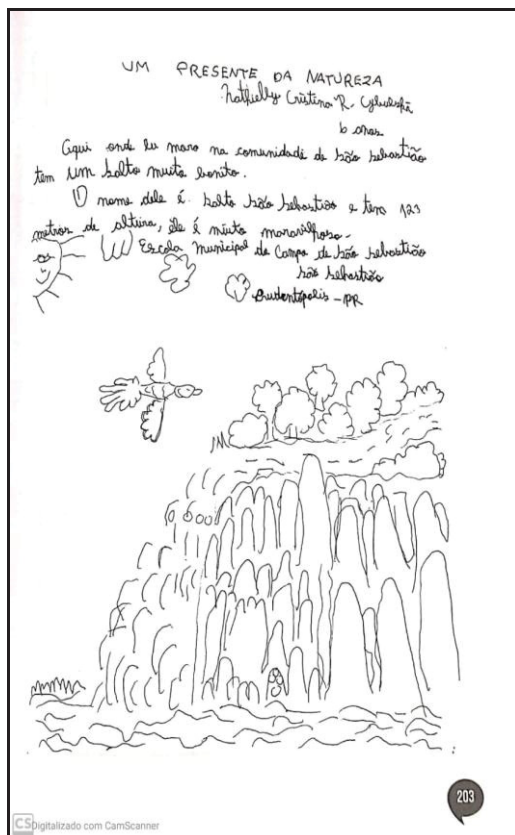 UM PRESENTE DA NATUREZA
Nathielly Cristina R.
6 anos
Aqui onde eu moro na comunidade de São Sebastião
tem um Salto muito bonito.
O nome dele é Salto São Sebastião e tem 123
metros de altura, ele é muito maravilhoso.
Escola Municipal do Campo de São Sebastião
São Sebastião
Prudentópolis - PR
203
CS Digitalizado com CamScanner